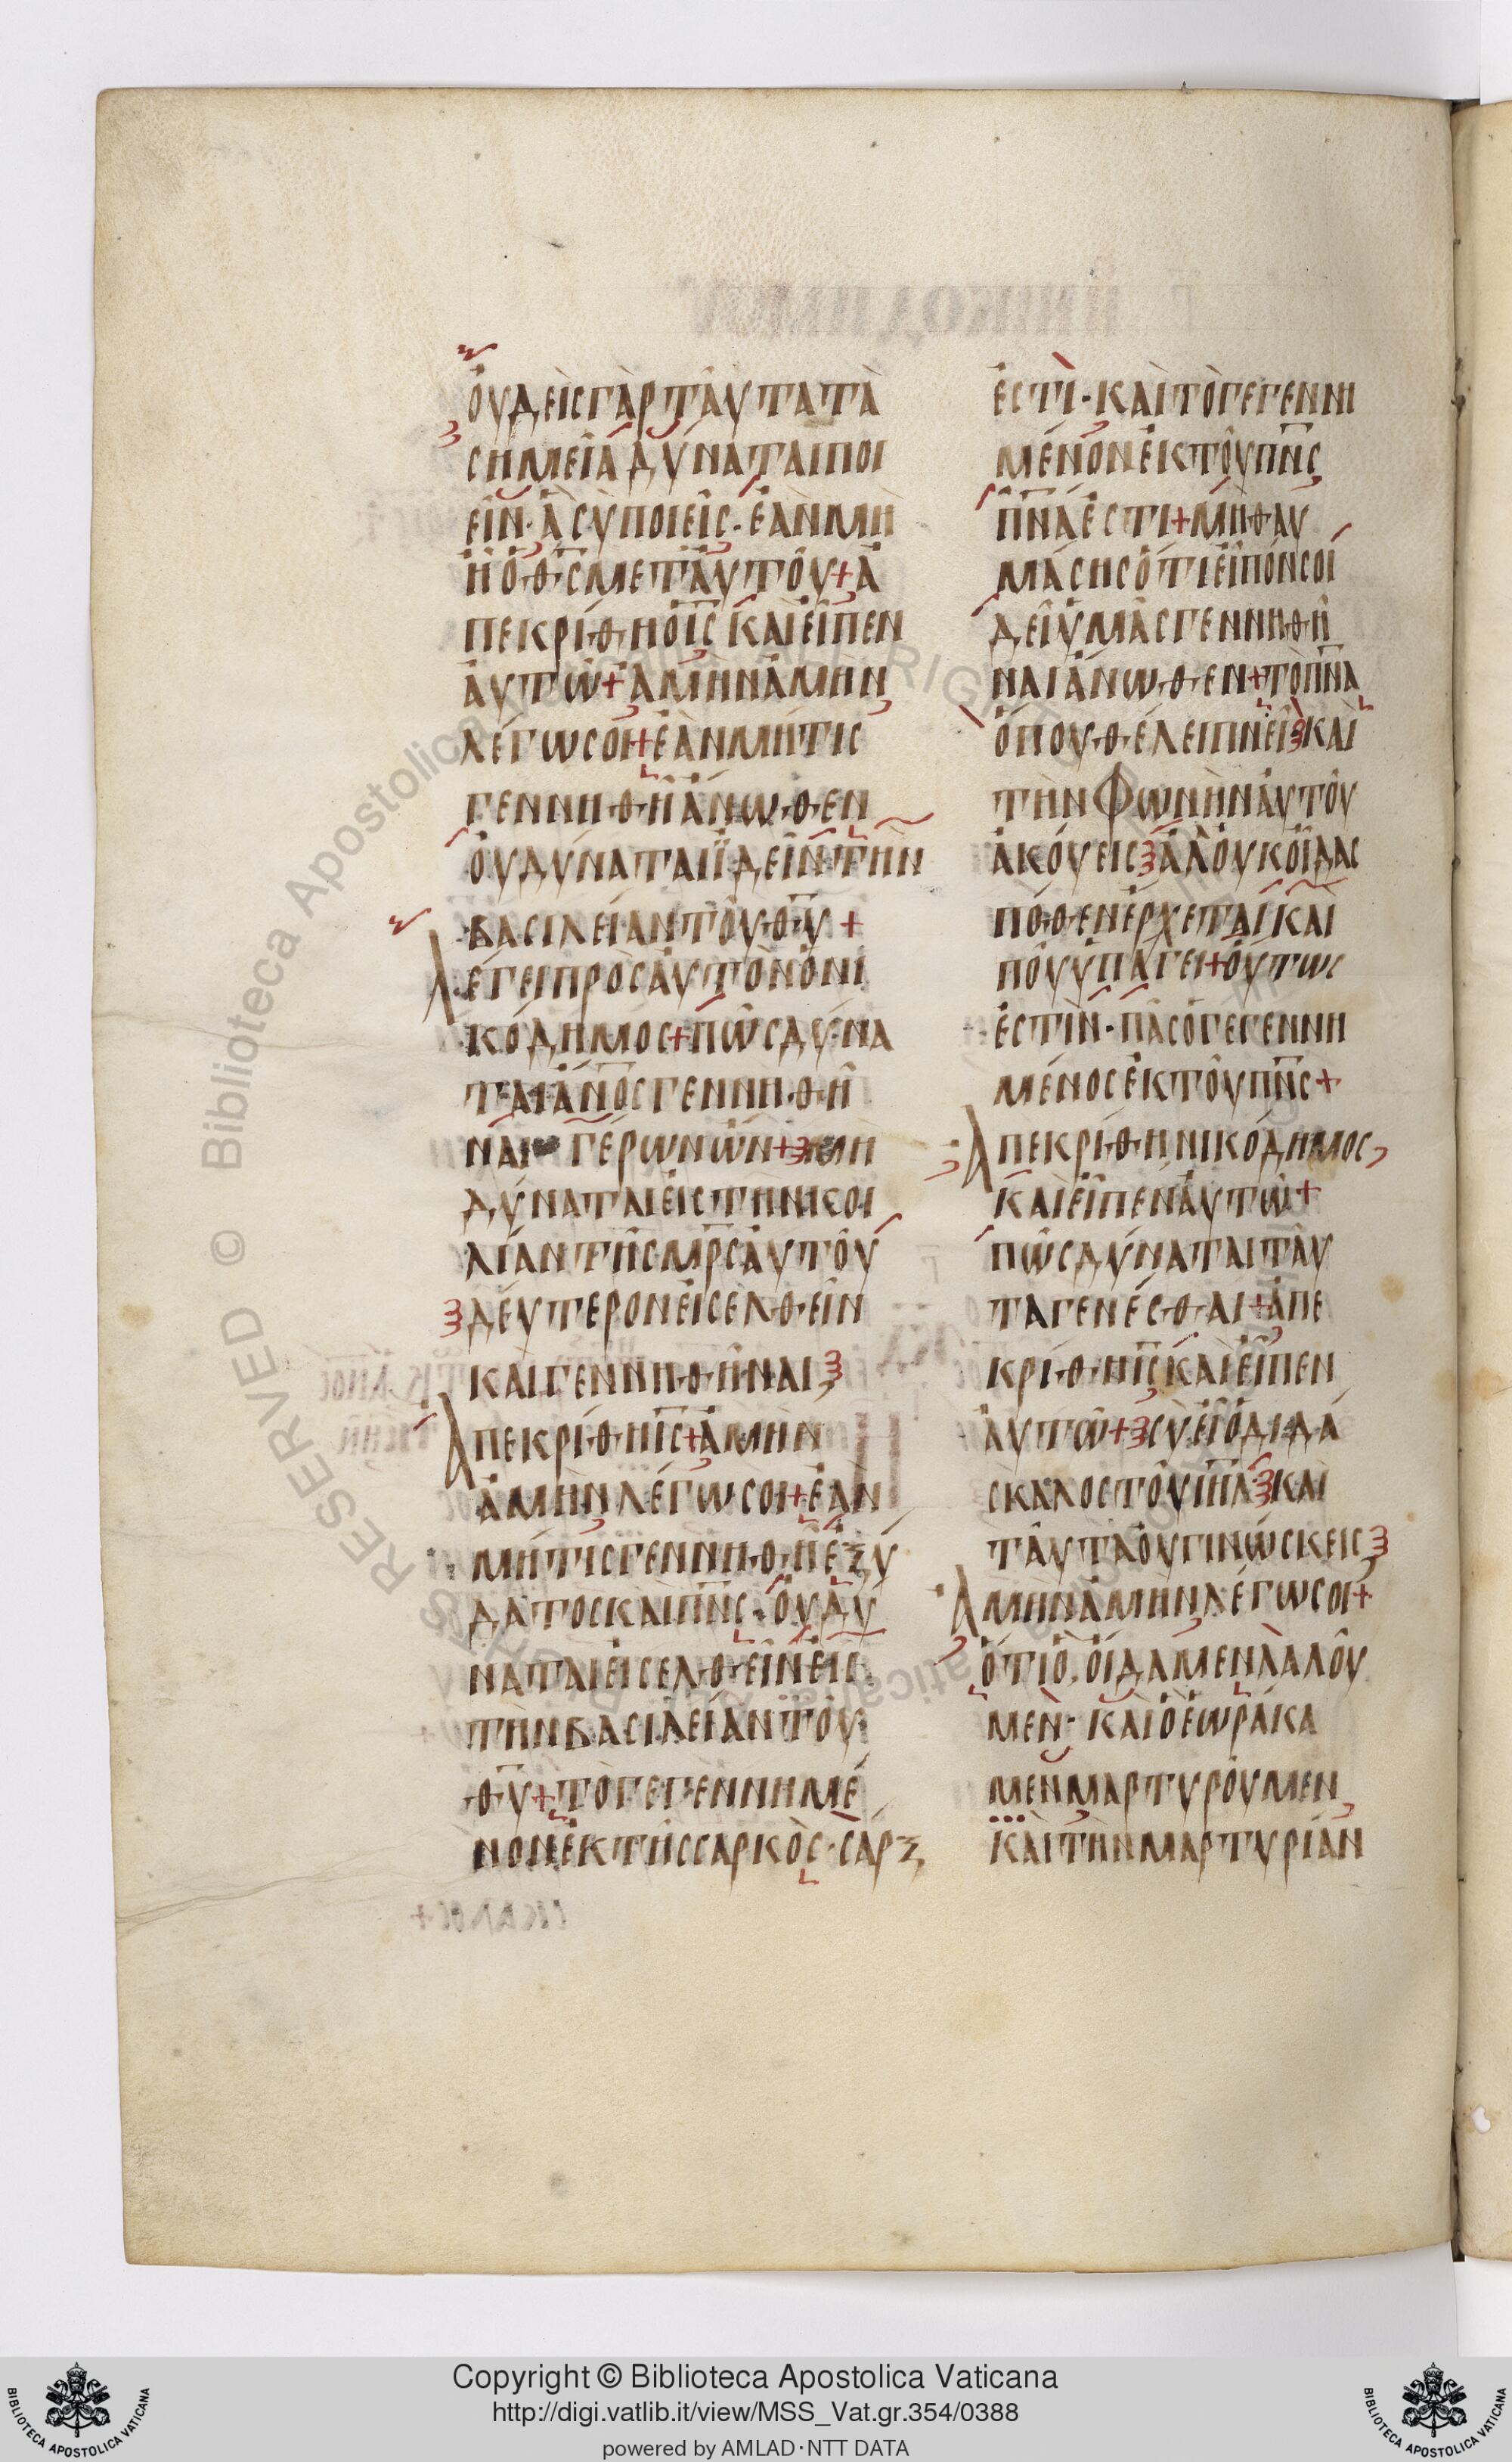 ὀυδεὶς γὰρ τᾶυτα τὰ
σημεῖα δύναται ποι
εῖν· ἃ σὺ ποιεῖς· ἐὰν μὴ
ἦ ὁ θς μετ' ἀυτοῦ + ἀ
πεκρίθη ὁ ις καὶ εἶπεν
ἀυτῶ + ἀμὴν ἀμὴν
λέγω σοι + ἐὰν μή τις
γεννηθῆ ἄνωθεν
ὀυ δύναται ἰδεῖν τὴν
βασιλείαν τοῦ θυ +
λέγει πρὸς ἀυτὸν ὁ νι
κόδημος + πῶς δύνα
ται ἄνος γεννηθῆ
ναι γέρων ὤν + μὴ
δύναται εἰς τὴν κοι
λίαν τῆς μρς ἀυτοῦ
δέυτερον εἰσελθεῖν
καὶ γεννηθῆναι
Ἀπεκρίθη ις + ἀμὴν
ἀμὴν λέγω σοι + ἐὰν
μή τις γεννηθῆ ἐξ ύ
δατος καὶ πνς· ὀυ δύ
ναται εἰσελθεῖν εἰς
τὴν βασιλείαν τοῦ
θυ + τὸ γεγεννημέ
νον ἐκ τῆς σαρκὸς· σάρξ
ἐστὶ· καὶ τὸ γεγεννη
μένον ἐκ τοῦ πνς
πνα ἐστι + μὴ θαυ
μάσης ὅτι εἶπόν σοι
δεῖ ὑμᾶς γεννηθῆ
ναι ἄνωθεν + τὸ πνα
ὅπου θέλει πνεῖ καὶ
τὴν φωνὴν ἀυτοῦ
ἀκούεις ἀλ' ὀυκ οἶδας
πόθεν ἔρχεται καὶ
ποῦ ὑπάγει + ὅυτως
ἐστὶν· πᾶς ὁ γεγεννη
μένος ἐκ τοῦ πνς +
Ἀπεκρίθη νικόδημος
καὶ εἶπεν ἀυτῶ +
πῶς δύναται ταῦ
τα γενέσθαι + ἀπε
κρίθη ις καὶ εἶπεν
ἀυτῶ + σὺ εἶ ὁ διδά
σκαλος τοῦ ιηλ καὶ
ταῦτα ὀυ γινώσκεις
Ἀμὴν ἀμὴν λέγω σοι +
ὅτι ὃ οἴδαμεν λαλοῦ
μεν· καὶ ὃ ἑωράκα
μεν μαρτυροῦμεν
καὶ τὴν μαρτυρίαν
RESERVED © Biblioteca Apostolica Vaticana
Copyright © Biblioteca Apostolica Vaticana
http://digi.vatlib.it/view/MSS_Vat.gr.354/0388
powered by AMLAD·NTT DATA
BIBLIOTECA APOSTOLICA VATICANA
BIBLIOTECA APOSTOLICA VATICANA